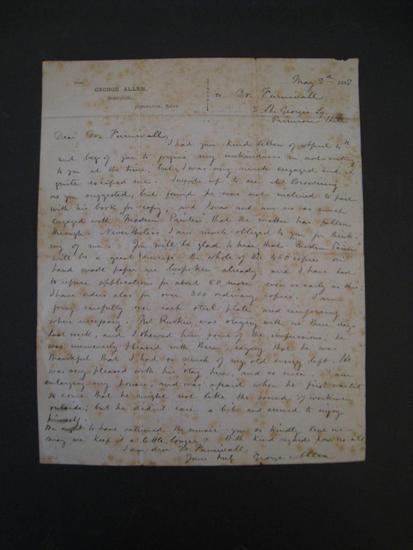 GEORGE ALLEN,
May 3rd
to Dr. Furnivall
3 St. George's Sq
Primrose Hill
Dear Dr. Furnivall
I had your kind letter of April 4th
and beg of you to forgive my unkindness in not writing
to you at the time, but I was very much engaged and it
quite escaped me. I went up to see Mr
as you suggested, but found he was not inclined to part
with his book for copy, and I was and am so much
engaged with "Modern Painters" that the matter has fallen
through. Nevertheless I am much obliged to you for think-
ing of me. You will be glad to hear that "Modern Painters"
will be a great success - the whole of the 450 copies on
hand made paper are bespoken already and I have had
to refuse applications for about 60 more even as early as this.
I have orders also for over 300 ordinary copies. I am
going carefully over each steel plate and reinforcing
where necessary. Mr Ruskin was staying with us three days
last week, and I showed him some of the impressions, he
was immensely pleased with them, saying that he was
thankful that I had so much of my old energy left. He
was very pleased with his stay here, and as now I am
enlarging my house, and was afraid when he first wanted
to come that he might not like the sound of workmen
outside; but he didn't care a bit and seemed to enjoy
himself.
We ought to have returned the music you so kindly lent us
may we keep it a little longer? With kind regards from us all
I am dear Dr Furnivall
Yours truly George Allen